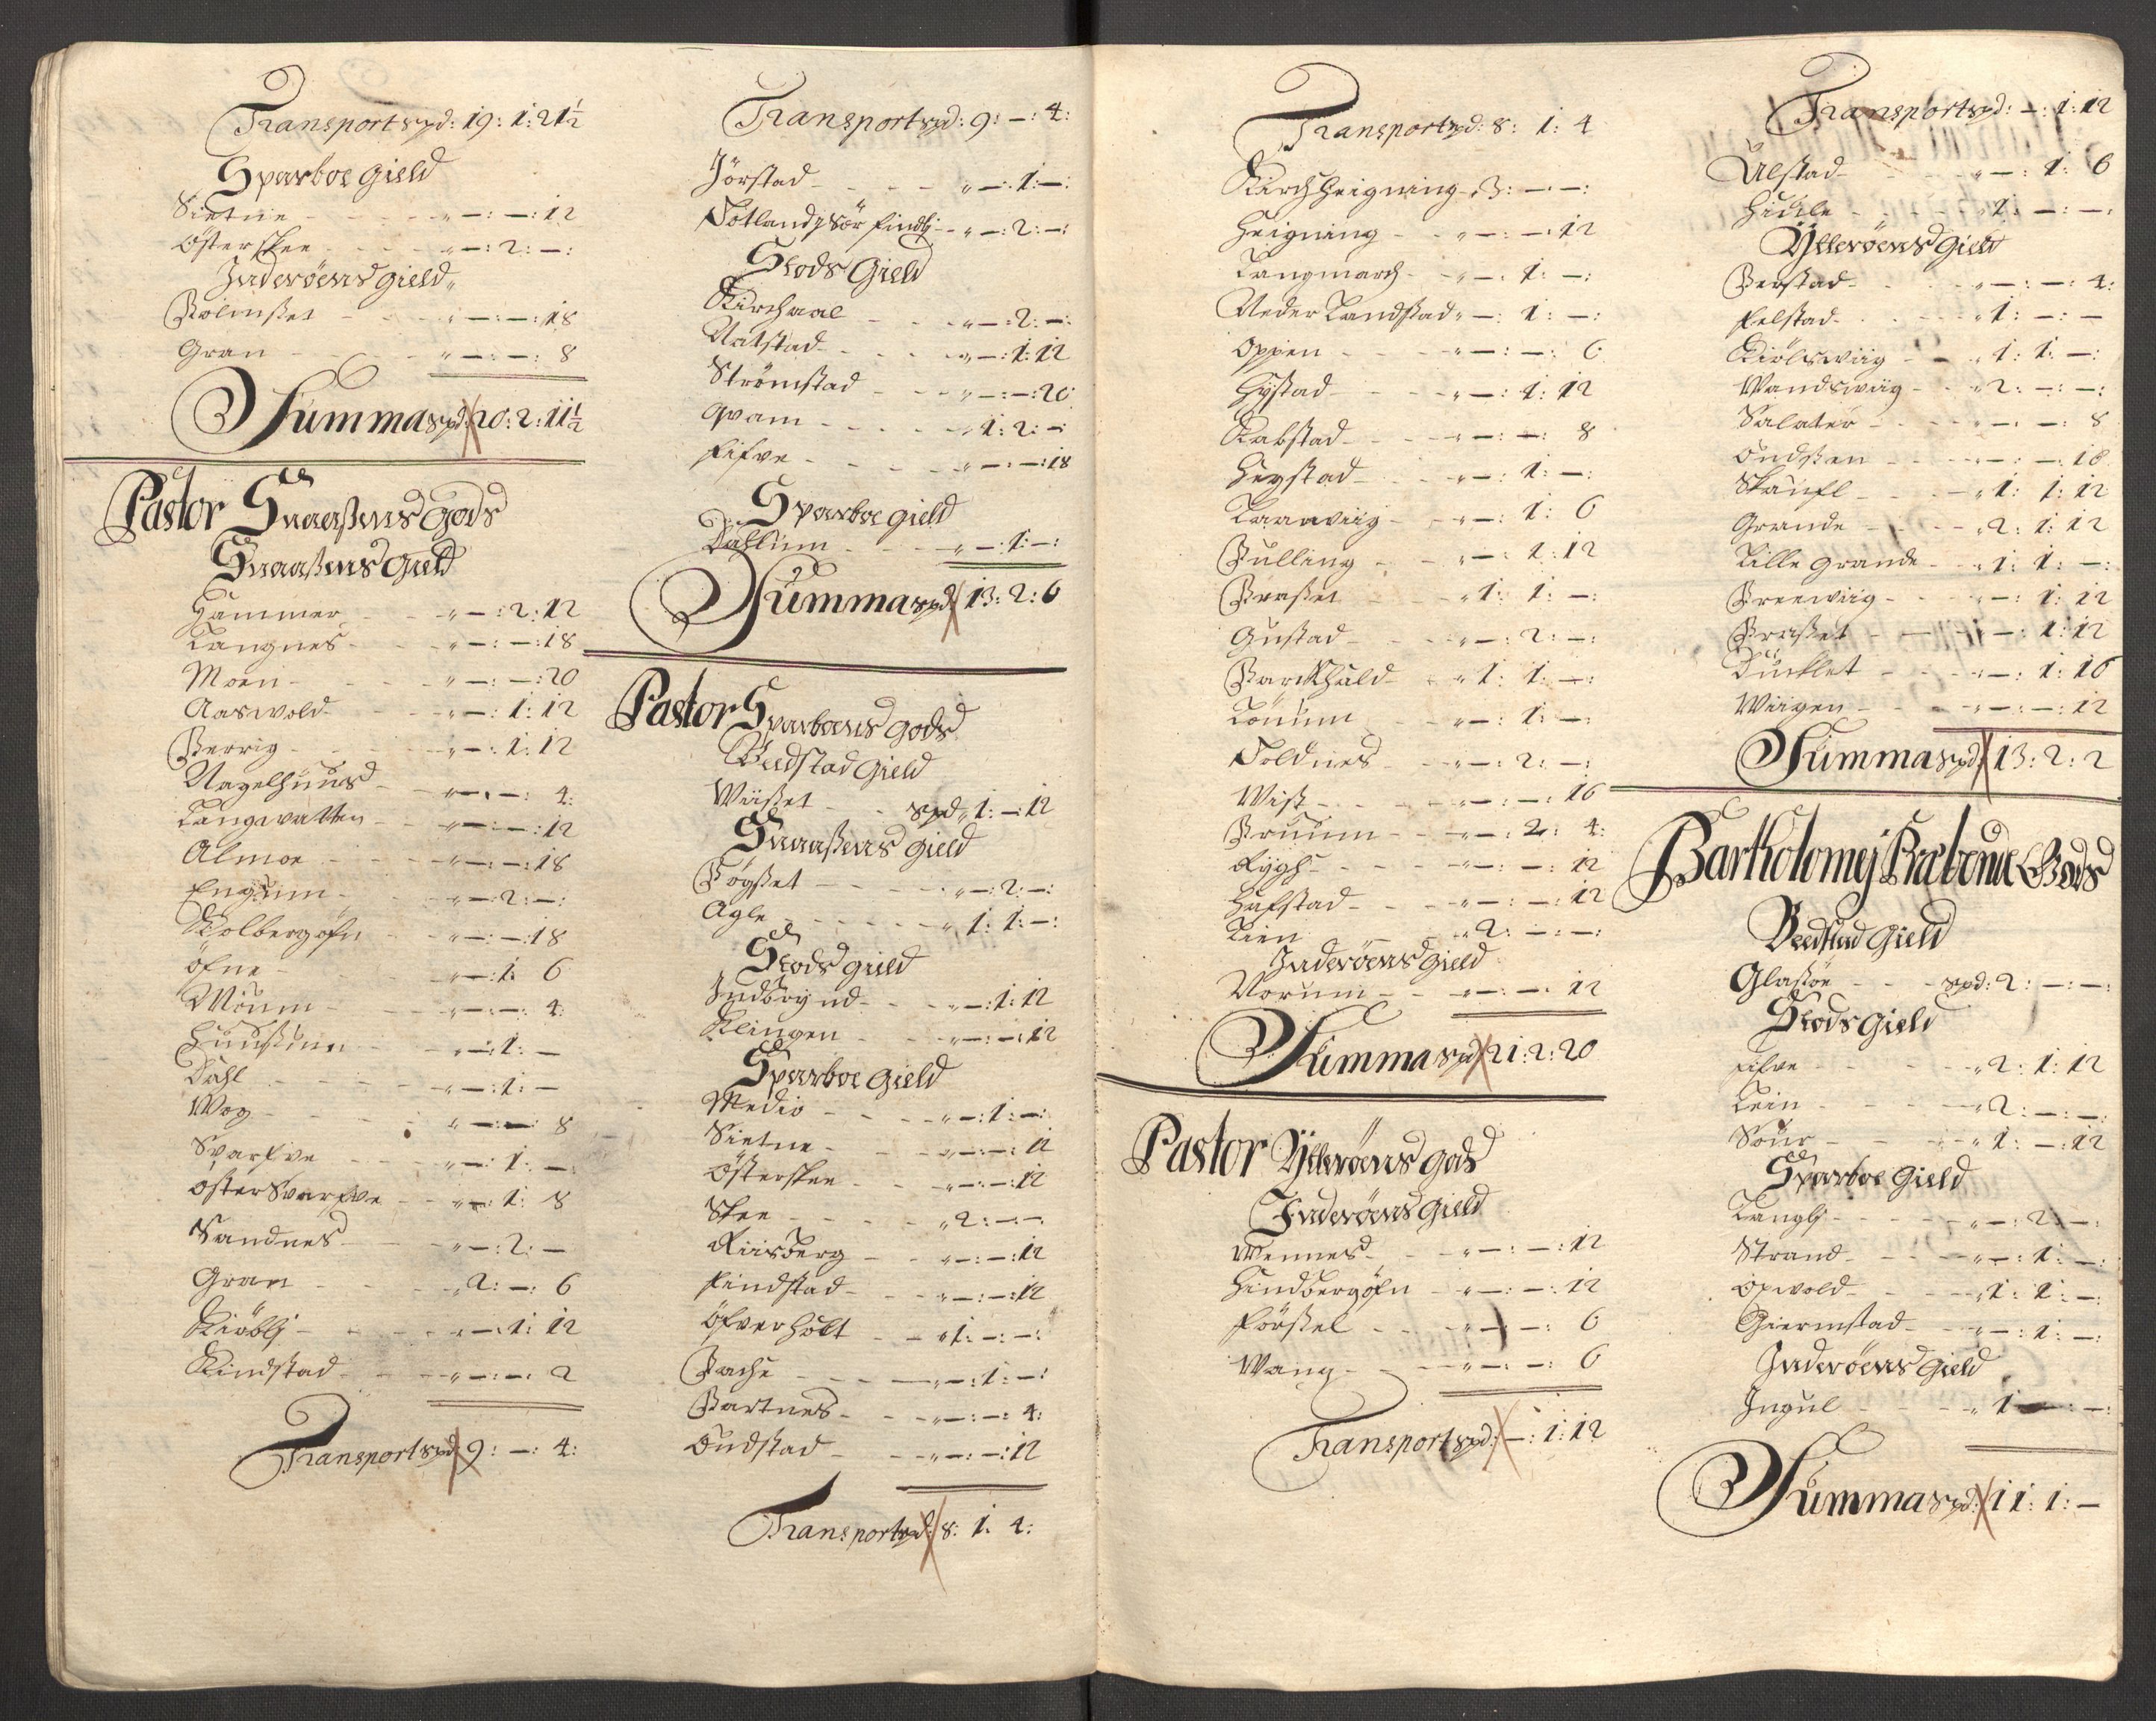 Transport spd: 19: 1: 21½
Sparboe gield
Sietne - - - " — : — : 12
Østerskee - - - " — : 2 : — :
Inderöens gield
Bólmsset - - " — : — : 18
Gran - - " — : — : 8
Summa spd: 20: 2: 11½
Pastor Snaassens gods
Snaassens gield
Hammer - - " — : 2: 12
Langnes - - " — : — : 18
Moen - - " — : — : 20
Aaswold - - " — : 1: 12
Berrig - - " — : 1: 12
Nagelhuus - " — : — : 4:
Langwatten - - " — : — : 12
Almoe - - " — : — : 18
Engum - - " — : 2: — :
Kolbergöfn - - " — : — : 18
Öfne - - " — : 1: 6
Moum - - " — : — : 4:
Huussum - - " — : 1: —
Dahl - - " — : 1: —
Wog - - " — : — : 8
Svarfve - - " — : 1: — :
Øster Svarfve - " — : 1: 8
Sandnes - - " — : 2: —
Gran - - " 2: — : 6
Kiöblj - - " — : 1: 12
Kindstad - - " — : — : 2
Transport spd 9: — : 4:
Transport spd: 9: — : 4:
Jörstad - - " — : 1: — :
Totland sör findlj - " — : 2: — :
Stods Gield
Kirchaal - - " — : 2: — :
Natstad - - " — : 1: 12
Strömstad - - " — : — : 20
Qvam - - " 1: 2: — :
Fifve - - " — : — : 18
Sparboe gield
Dahlum - - " — : 1: — :
Summa spd 13: 2: 6
Pastor Sparboens gods
Beedstad Gield
Wiisset - - spd " 1: — : 12
Snaassens gield
Bögsset - - " — : 2: — :
Agle - - " 1: 1: — :
Stods gield
Indbrynd - - " — : 1: 12
Klingen - - " — : — : 12
Sparboe Gield
Medio - - " — : 1: — :
Sietne - - " — : — : 12
Österskee - - " — : — : 12
Skee - - " 2: — : —
Riisberg - - " — : — : 12
Findstad - - " — : — : 12
Öfverholt - - " 1: — : — :
Bache - - " — : 1: — :
Bartnes - - " — : — : 4:
Oudstad - - " — : — : 12
Transport spd: 8: 1: 4:
Transport spd: 8: 1: 4
Kirchheigning " 3: — : — :
Heigning - - " — : — : 12
Langmarch - " — : 1: — :
Neder Landstad " — : 1: — :
Oppen - - " — : — : 6
Hÿstad - - " — : 1: 12
Kabstad - - " — : — : 8
Hegstad - - " — : 1: — :
Laarviig - - " — : 1: 6
Bulling - - " — : 1: 12
Braset - - " 1: 1: — :
Gustad - - " — : 2: — :
Barckhald - " 1: 1: — :
Lóuum - - " — : 1: — :
Foldnes - - " — : 2: — :
Wist - - " — : — : 16
Bruum - - " — : 2: 4:
Rygh - - " — : — : 12
Hafstad - - " — : — : 12
Lien - - " 2: — : — :
Inderöens gield
Norum - - " — : — : 12
Summa spd 21: 2: 20
Pastor Ytterøens gods
Inderöens gield
Wennes - - " — : — : 12
Hindbergöfn - " — : — : 12
Fórssel - - " — : — : 6
Wang - - " — : — : 6
Transport spd: — : 1: 12
Transport spd: — : 1: 12
Ulstad - - " — : 1: 6
Hidle - - " 1: — : — :
Ytterøens gield
Berstad - - " — : — : 4:
Felstad - - " 1: — : —
Kiölswiig - - " 1: 1: — :
Wandswiig - - " 2: — : — :
Salater - - " — : — : 8
Oudsen - - " — : — : 18
Skaufl - - " 1: 1: 12
Grande - - " 2: 1: 12
Lille Grande - " 1: 1: — :
Breewiig - - " — : 1: 12
Brasset - - " — : 1: 12
Duncklet - - " — : 1: 16
Wiigen - - " — : — : 12
Summa spd: 13: 2: 2
Bartholomej Præbende Gods
Beedstad Gield
Glassöe - - spd: 2: — : — :
Stods Gield
Fifve - - " 2: 1: 12
Lein - - " 2: — : — :
Sour - - " 1: — : 12
Sparboe Gield
Langlj - - " — : 2: — :
Strand - - " — : 1: — :
Opwold - - " 1: 1: — :
Giermstad - " — : 1: — :
Inderöens Gield
Ingul - - " 1: — : — :
Summa spd: 11: 1: —